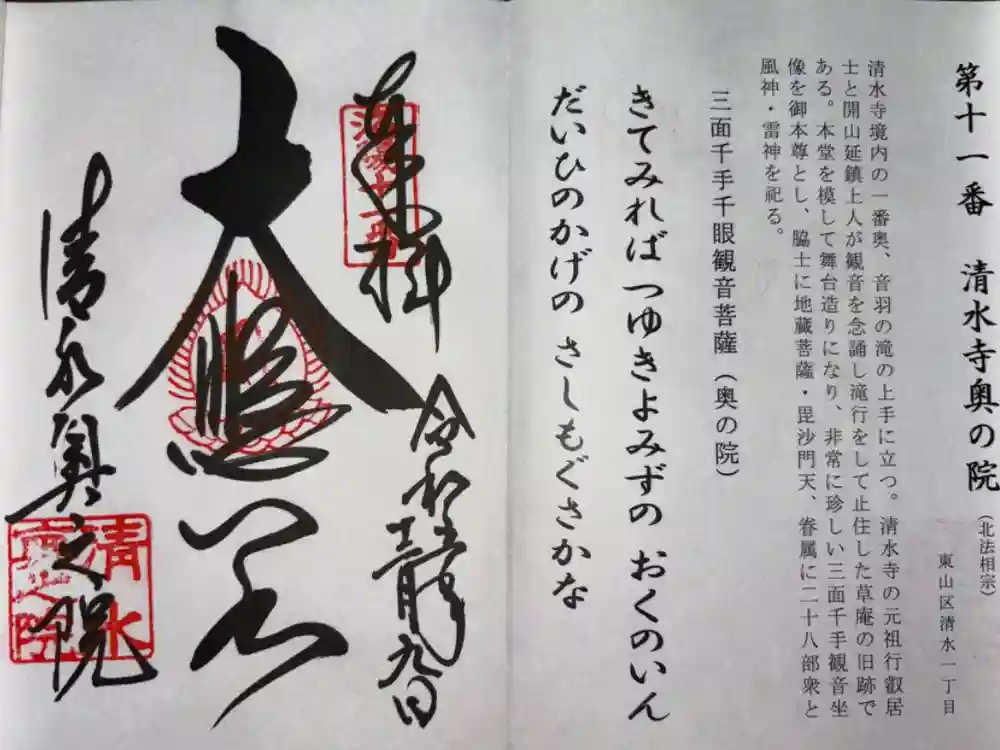 第十一番　清水寺奥の院（北法相宗）
東山区清水一丁目
清水寺境内の一番奥、音羽の滝の上手に立つ。清水寺の元祖行叡居
士と開山延鎮上人が観音を念誦し滝行をして止住した草庵の旧跡で
ある。本堂を模して舞台造りになり、非常に珍しい三面千手観音坐
像を御本尊とし、脇士に地蔵菩薩・毘沙門天、眷属に二十八部衆と
風神・雷神を祀る。
三面千手千眼観音菩薩（奥の院）
きてみれば つゆきよみずの おくのいん
だいひのかげの さしもぐさかな
奉拝
洛陽十一番
令和 九日
大悲閣
清水奥之院
清水
奥院